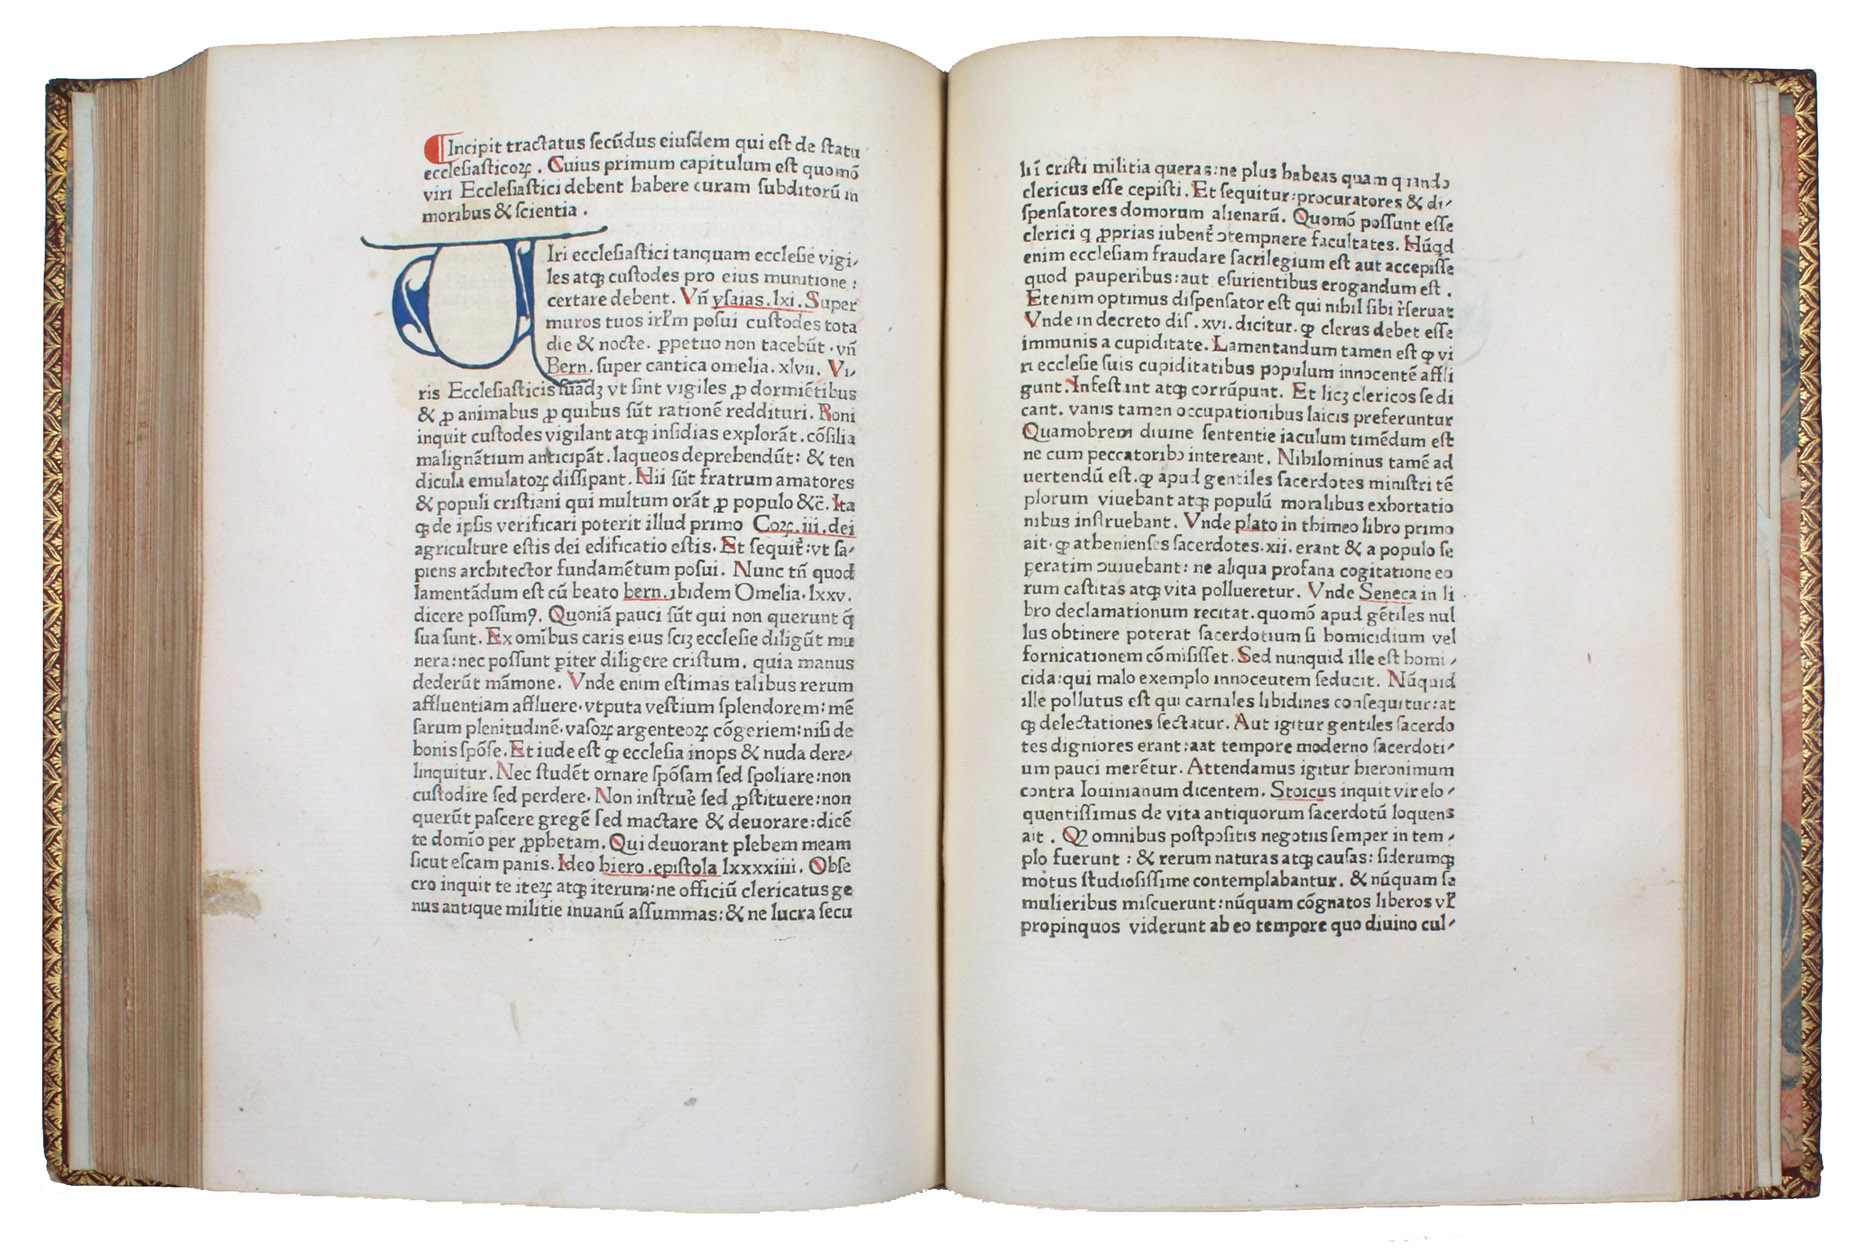 Incipit tractatus secūdus eiusdem qui est de statu
ecclesiasticoꝝ. Cuius primum capitulum est quomō
viri Ecclesiastici debent habere curam subditorū in
moribus & scientia.
VIri ecclesiastici tanquam ecclesie vigi/
les atqꝫ custodes pro eius munitione:
certare debent. Vn̄ ysaias. lxi. Super
muros tuos irl̄m posui custodes tota
die & nocte. ꝑpetuo non tacebūt. vn̄
Bern. super cantica omelia. xlvii. Vi/
ris Ecclesiasticis suadꝫ vt sint vigiles ꝓ dormiētibus
& ꝓ animabus ꝓ quibus sūt rationē reddituri. Boni
inquit custodes vigilant atqꝫ insidias explorāt. cōsilia
malignātium anticipāt. laqueos deprehendūt: & ten
dicula emulatoꝝ dissipant. Hii sūt fratrum amatores
& populi cristiani qui multum orāt ꝓ populo &c̄. Ita
ꝙ de ipsis verificari poterit illud primo Coꝝ. iii. dei
agriculture estis dei edificatio estis. Et sequit̄: vt sa/
piens architector fundamētum posui. Nunc tn̄ quod
lamentādum est cū beato bern. ibidem Omelia. lxxv.
dicere possumꝰ. Quoniā pauci sūt qui non querunt q̄
sua sunt. Ex omībus caris eius scꝫ ecclesie diligūt mu
nera: nec possunt ꝑiter diligere cristum. quia manus
dederūt māmone. Vnde enim estimas talibus rerum
affluentiam affluere. vtputa vestium splendorem: mē
sarum plenitudinē. vasoꝝ argenteoꝝ cōgeriem: nisi de
bonis spōse. Et iude est ꝙ ecclesia inops & nuda dere/
linquitur. Nec studēt ornare spōsam sed spoliare: non
custodire sed perdere. Non instrue᷑ sed ꝓstituere: non
querūt pascere gregē sed mactare & deuorare: dicē
te domīo per ꝓphetam. Qui deuorant plebem meam
sicut escam panis. Ideo hiero. epistola lxxxxiiii. Obse
cro inquit te iteꝝ atqꝫ iterum: ne officiū clericatus ge
nus antique militie inuanū assummas: & ne lucra secu
li ī cristi militia queras: ne plus habeas quam quando
clericus esse cepisti. Et sequitur: procuratores & di/
spensatores domorum alienarū. Quomō possunt esse
clerici q ꝓprias iubent̄ ↄtempnere facultates. Nūqd
enim ecclesiam fraudare sacrilegium est aut accepisse
quod pauperibus: aut esurientibus erogandum est.
Etenim optimus dispensator est qui nihil sibi r̄seruat
Vnde in decreto dis. xvi. dicitur. ꝙ clerus debet esse
immunis a cupiditate. Lamentandum tamen est ꝙ vi
ri ecclesie suis cupiditatibus populum innocentē affli
gunt. Infestant atqꝫ corrūpunt. Et licꝫ clericos se di
cant. vanis tamen occupationibus laicis preferuntur
Quamobrem diuine sententie iaculum timēdum est
ne cum peccatoribꝰ intereant. Nihilominus tamē ad
uertendū est. ꝙ apud gentiles sacerdotes ministri tē
plorum viuebant atqꝫ populū moralibus exhortatio
nibus instruebant. Vnde plato in thimeo libro primo
ait. ꝙ athenienses sacerdotes. xii. erant & a populo se
peratim ↄuiuebant: ne aliqua profana cogitatione eo
rum castitas atqꝫ vita pollueretur. Vnde Seneca in li
bro declamationum recitat. quomō apud gētiles nul
lus obtinere poterat sacerdotium si homicidium vel
fornicationem cōmisisset. Sed nunquid ille est homi/
cida: qui malo exemplo innoceutem seducit. Nūquid
ille pollutus est qui carnales libidines consequitur: at
qꝫ delectationes sectatur. Aut igitur gentiles sacerdo
tes digniores erant: aat tempore moderno sacerdoti/
um pauci merētur. Attendamus igitur hieronimum
contra Iouinianum dicentem. Stoicus inquit vir elo/
quentissimus de vita antiquorum sacerdotū loquens
ait. Qꝫ omnibus postpositis negotiis semper in tem/
plo fuerunt: & rerum naturas atqꝫ causas: siderumqꝫ
motus studiosissime contemplabantur. & nūquam se
mulieribus miscuerunt: nūquam cōgnatos liberos vl̄
propinquos viderunt ab eo tempore quo diuino cul/